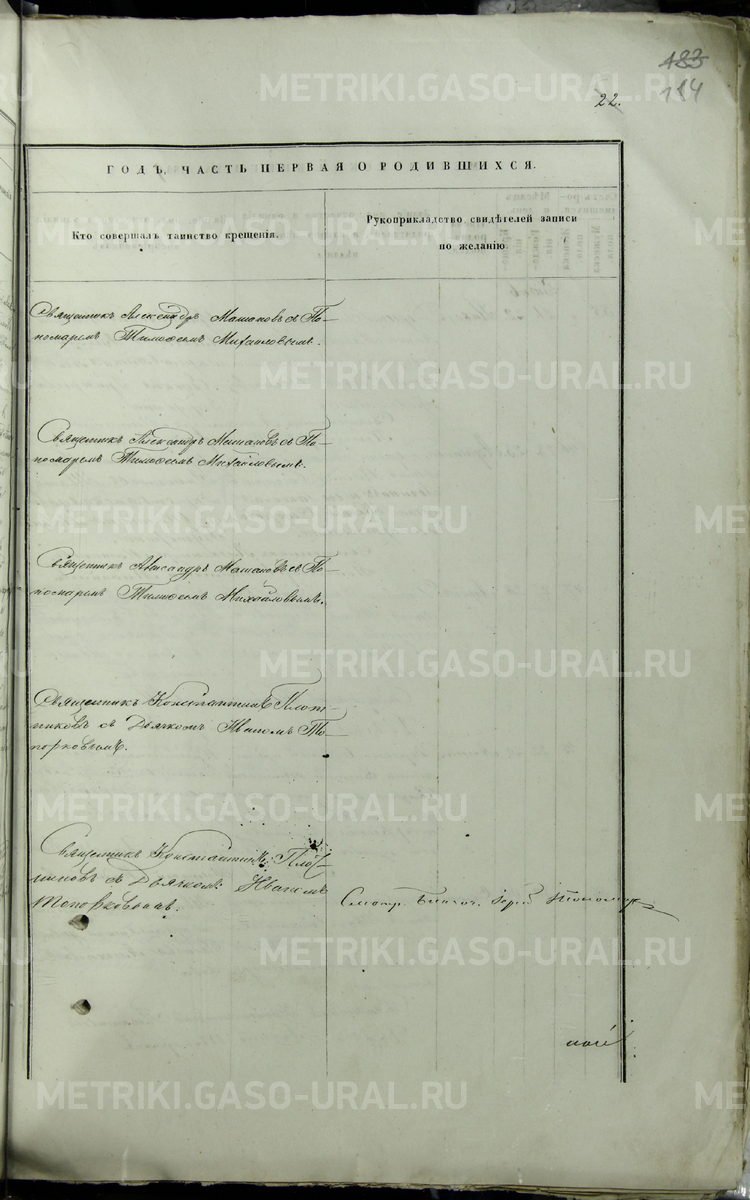 183
184
22.
ГОДЪ, ЧАСТЬ ПЕРВАЯ О РОДИВШИХСЯ.
Кто совершалъ таинство крещенія.
Рукоприкладство свидѣтелей записи
по желанію.
Священникъ Александръ Машановъ съ По-
номаремъ Тимофеемъ Михайловымъ.
Священникъ Александръ Машановъ съ По-
номаремъ Тимофеемъ Михайловымъ.
Священникъ Александръ Машановъ съ По-
номаремъ Тимофеемъ Михайловымъ.
Священникъ Константинъ Плот-
никовъ съ Дьячкомъ Иваномъ То-
порковымъ.
Священникъ Константинъ Плот-
никовъ съ Дьячкомъ Иваномъ
Топорковымъ.
METRIKI.GASO-URAL.RU